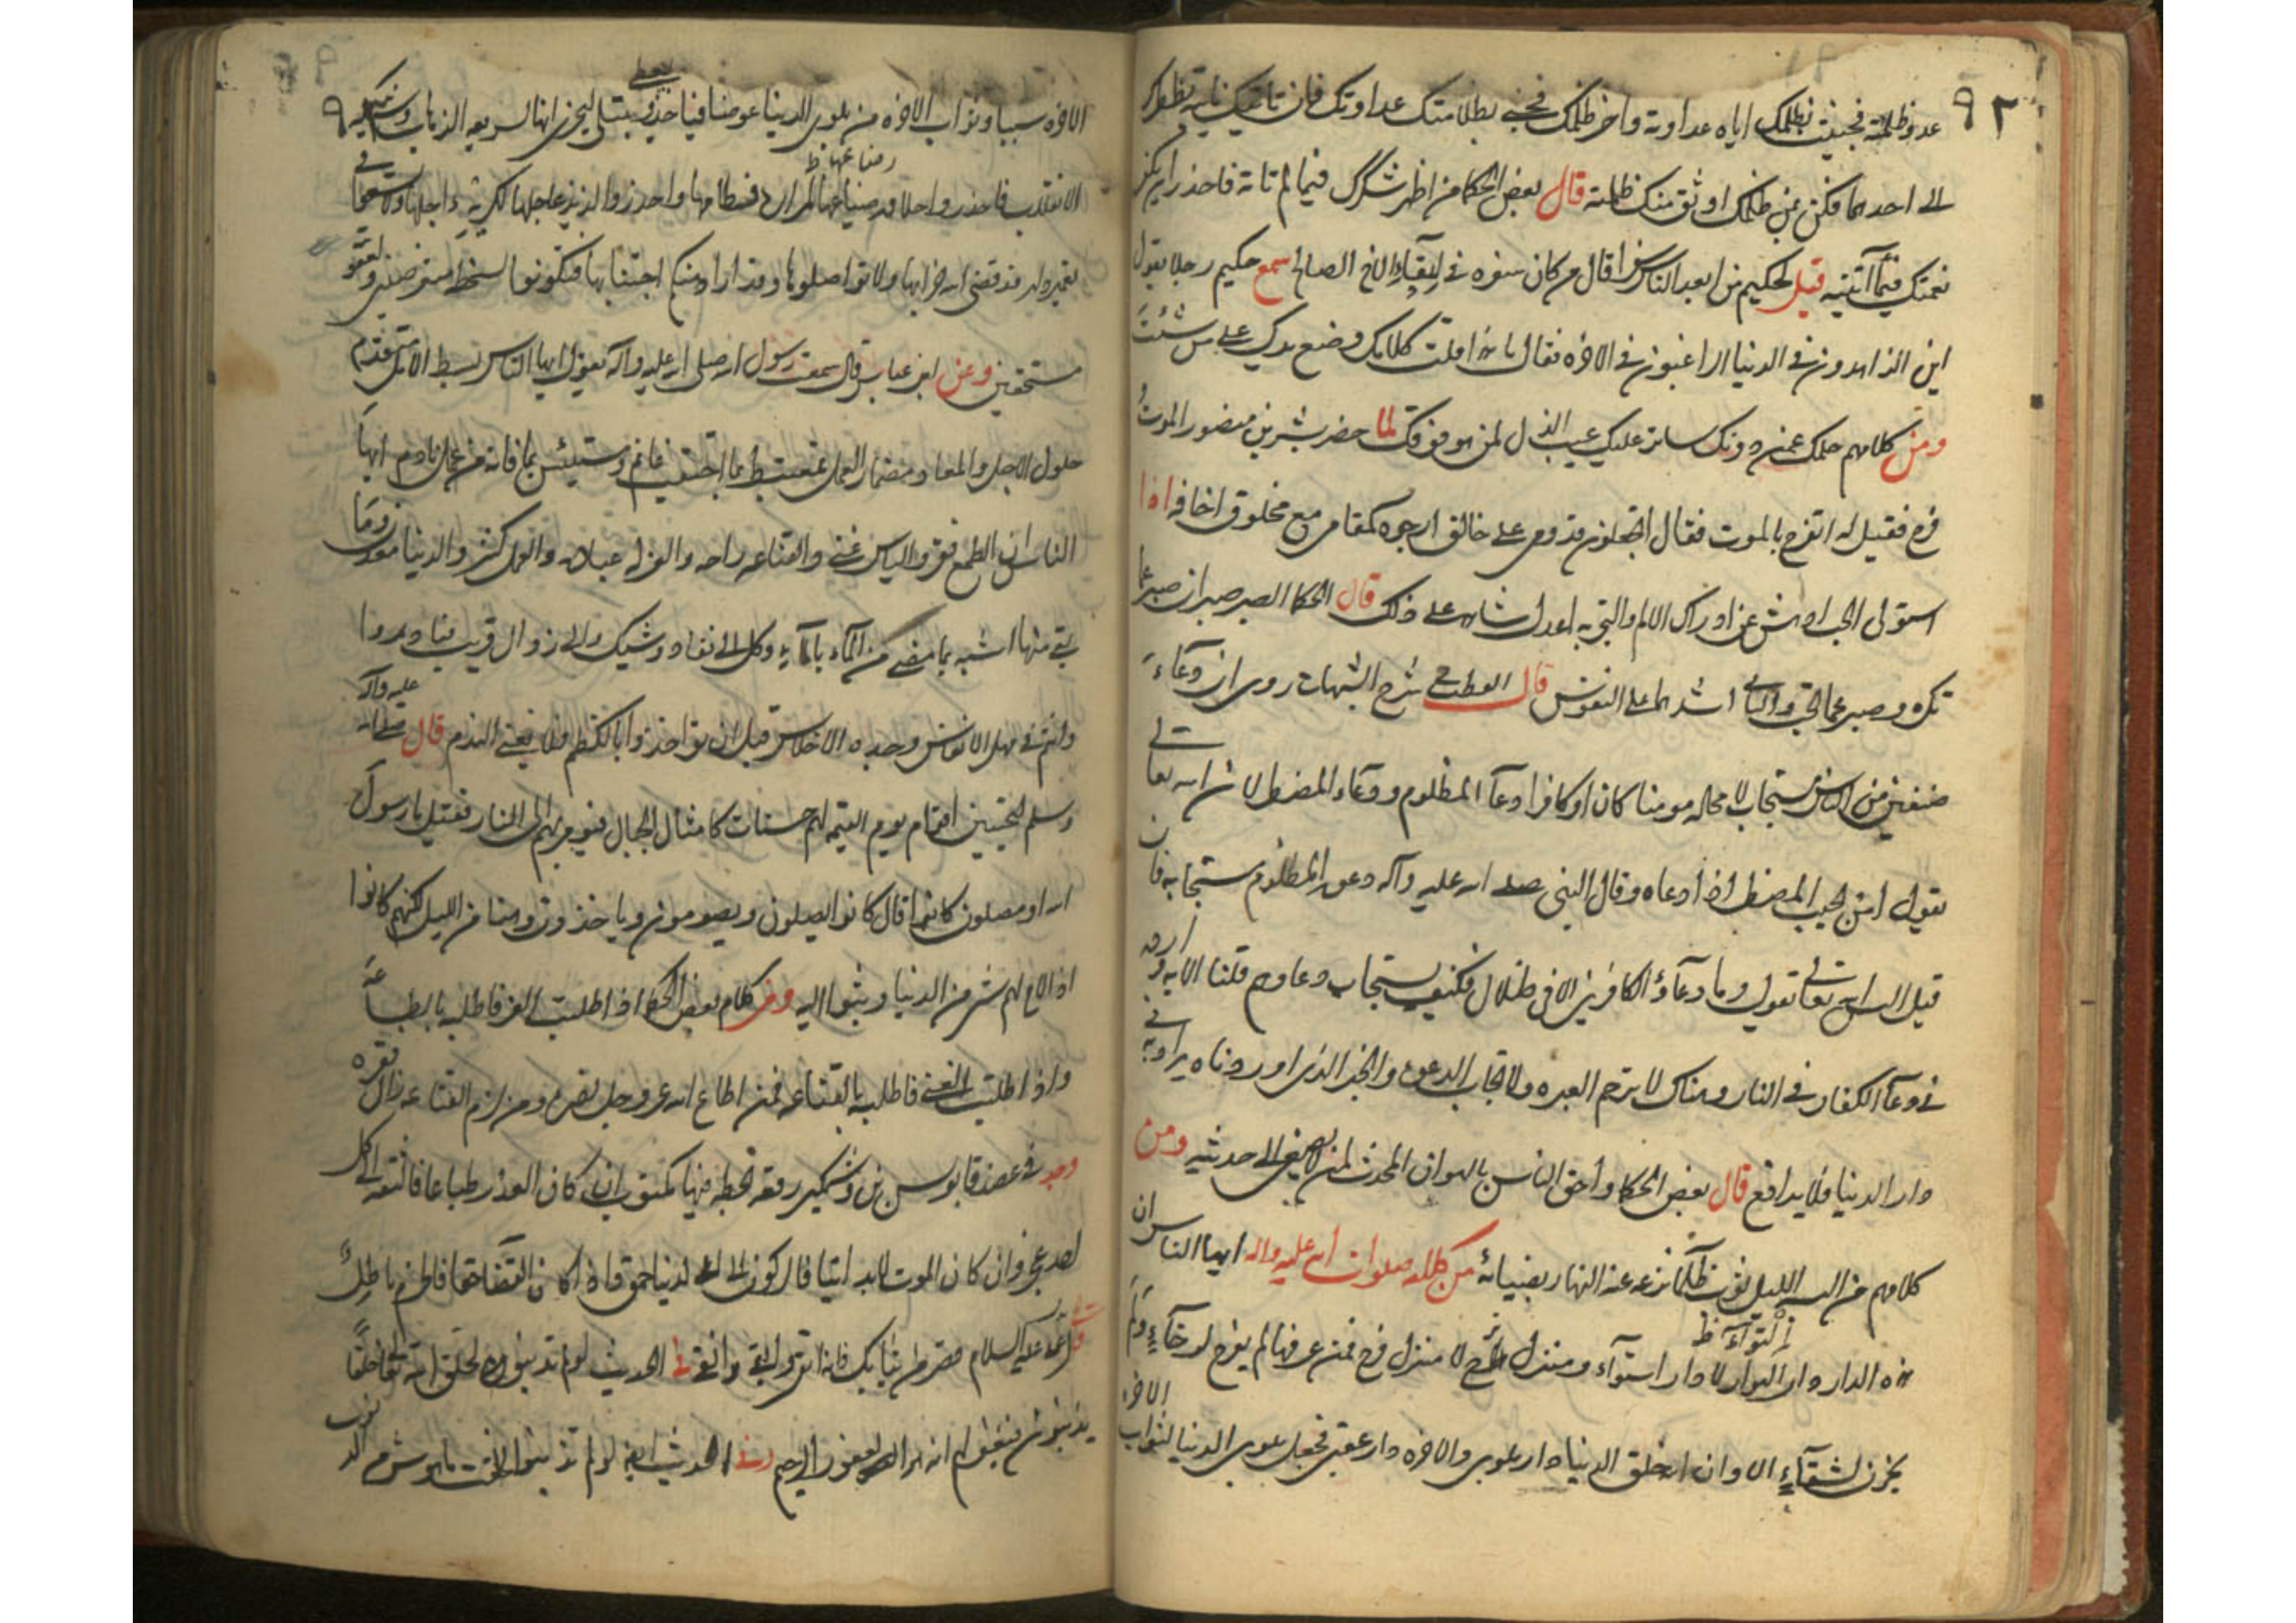 ٩٢
عدو ظلمته فجنيت بظلمك اياه عداوته واخر ظلمك فجنى بظلامتك عداوتك فان نابتك نايبة تضطرك
الى احدهما فكن بمن ظلمك اوثق منك بمن ظلمته قال بعض الحكما من اظهر شكرك فيما لم تاته فاحذر ان يكفر
نعمتك فيما آتيته قيل لحكيم من ابعد الناس سفرا قال من كان سفره في ابتغاء الاخ الصالح سمع حكيم رجلا يقول
اين الزاهدون في الدنيا الراغبون في الاخره فقال يا هذا اقلب كلامك وضع يدك على من شئت
ومن كلامهم حلمك عمن دونك ساتر عليك عيب الذل لمن هو فوقك لما حضر بشر بن منصور الموت
فرح فقيل له اتفرح بالموت فقال اتجعلون قدومي على خالق ارجوه كمقامي مع مخلوق اخافه اذا
استولى الجب ادهش عن ادراك الالم والتجربه اعدل شاهد على ذلك قال الحكما الصبر صبران صبر على ما
تكره وصبر عما تحب والثاني اشدهما على النفوس قال في شرح الشهاب روى ان دعاء
صنفين من الناس مستجاب لا محاله مومنا كان او كافرا دعاء المظلوم ودعاء المضطر لان الله تعالى
يقول امن يجيب المضطر اذا دعاه وقال النبي صلى الله عليه وآله دعوة المظلوم مستجابه فان
قيل اليس الله تعالى يقول وما دعاؤ الكافرين الا في ضلال فكيف يستجاب دعاوهم قلنا الايه وارده
في دعاء الكفار في النار وهناك لا يرحم العبره ولا تجاب الدعوة والخبر الذي اوردناه يراد به في
دار الدنيا فلا يدافع قال بعض الحكما واحق الناس بالهوان المحدث لمن لا يصغي الى حديثه ومن
كلامهم من البسه الليل ثوب ظلمائه نزعه عنه النهار بضيائه من كلامه صلوات الله عليه واله ايها الناس ان
هذه الدار دار التواء لا دار استواء ومنزل ترح لا منزل فرح فمن عرفها لم يفرح لرخاء ولم
يحزن لشقاء الا وان الله خلق الدنيا دار بلوى والاخره دار عقبى فجعل بلوى الدنيا لثواب الاخره
الاخره سببا وثواب الاخره من بلوى الدنيا عوضا فياخذ ليعطي ويبتلي ليجزي انها لسريعه الذهاب وشيكه
الانقلاب فاحذروا حلاوه رضاعها لمراره فطامها واحذروا لذيذ عاجلها لكريه اجلها ولا تسعوا في
تعمير دار قد قضى الله خرابها ولا تواصلوها وقد اراد منكم اجتنابها فتكونوا لسخطه متعرضين ولعقوبته
مستحقين وعن ابن عباس قال سمعت رسول الله صلى الله عليه وآله يقول ايها الناس بسط الامل متقدم
حلول الاجل والمعاد مضمار العمل فمغتبط بما احتقب غانم ومبتئس بما فاته من العمل نادم ايها
الناس ان الطمع فقر والياس غنى والقناعه راحه والعزله عباده والعمل كنز والدنيا معدن وما
بقي منها اشبه بما مضى من الماء بالماء وكل الى نفاد وشيك والى زوال قريب فبادروا
وانتم في مهل الانفاس وجده الاحلاس قبل ان تواخذوا بالكظم فلا يغني الندم قال صلى الله عليه وآله
وسلم ليجيئن اقوام يوم القيمه لهم حسنات كامثال الجبال فيومر بهم الى النار فقيل يا رسول
الله او مصلون كانوا قال كانوا يصلون ويصومون وياخذون وهنا من الليل لكنهم كانوا
اذا لاح لهم شي من الدنيا وثبوا اليه ومن كلام بعض الحكما اذا طلبت العز فاطلبه بالطاعة
واذا طلبت الغنى فاطلبه بالقناعه فمن اطاع الله عز وجل نصره ومن لزم القناعه زال فقره
وجد في عضد قابوس بن وشمكير رقعه بخطه فيها مكتوب ان كان الغدر طباعا فالثقه الى كل
احد عجز وان كان الموت لابد اتيا فالركون الى الدنيا حمق واذا كان القضا حقا فالحزم باطل
عليه السلام قصر من ثيابك فانه اتقى وابقى وانقى في الحديث لو لم تذنبوا لخلق الله تعالى خلقا
يذنبون فيغفر لهم انه هو الغفور الرحيم وفي الحديث ايضا لو لم تذنبوا لخفت ما هو شر من الذنوب